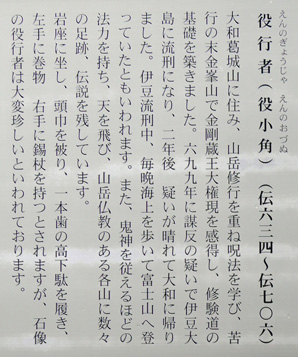 えんのぎょうじゃ えんのおづぬ
役行者（役小角）（伝六三四～伝七〇六）
大和葛城山に住み、山岳修行を重ね呪法を学び、苦
行の末金峯山で金剛蔵王大権現を感得し、修験道の
基礎を築きました。六九九年に謀反の疑いで伊豆大
島に流刑になり、二年後 疑いが晴れて大和に帰り
ました。伊豆流刑中、毎晩海上を歩いて富士山へ登
っていたともいわれます。また、鬼神を従えるほどの
法力を持ち、天を飛び、山岳仏教のある各山に数々
の足跡 伝説を残しています。
岩座に坐し、頭巾を被り、一本歯の高下駄を履き、
左手に巻物 右手に錫杖を持つとされますが、石像
の役行者は大変珍しいといわれております。